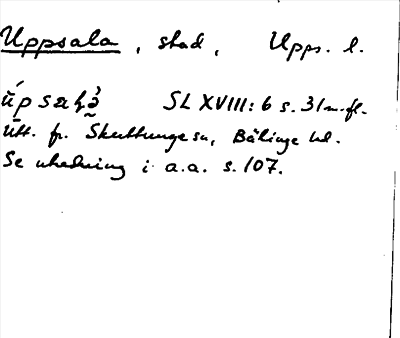 Uppsala, stad, Upps. l.
SL XVIII: 6 s. 31 m. fl.
Utt. fr. Skuttunge sn, Bälinge hd.
Se utredning i a.a. s. 107.